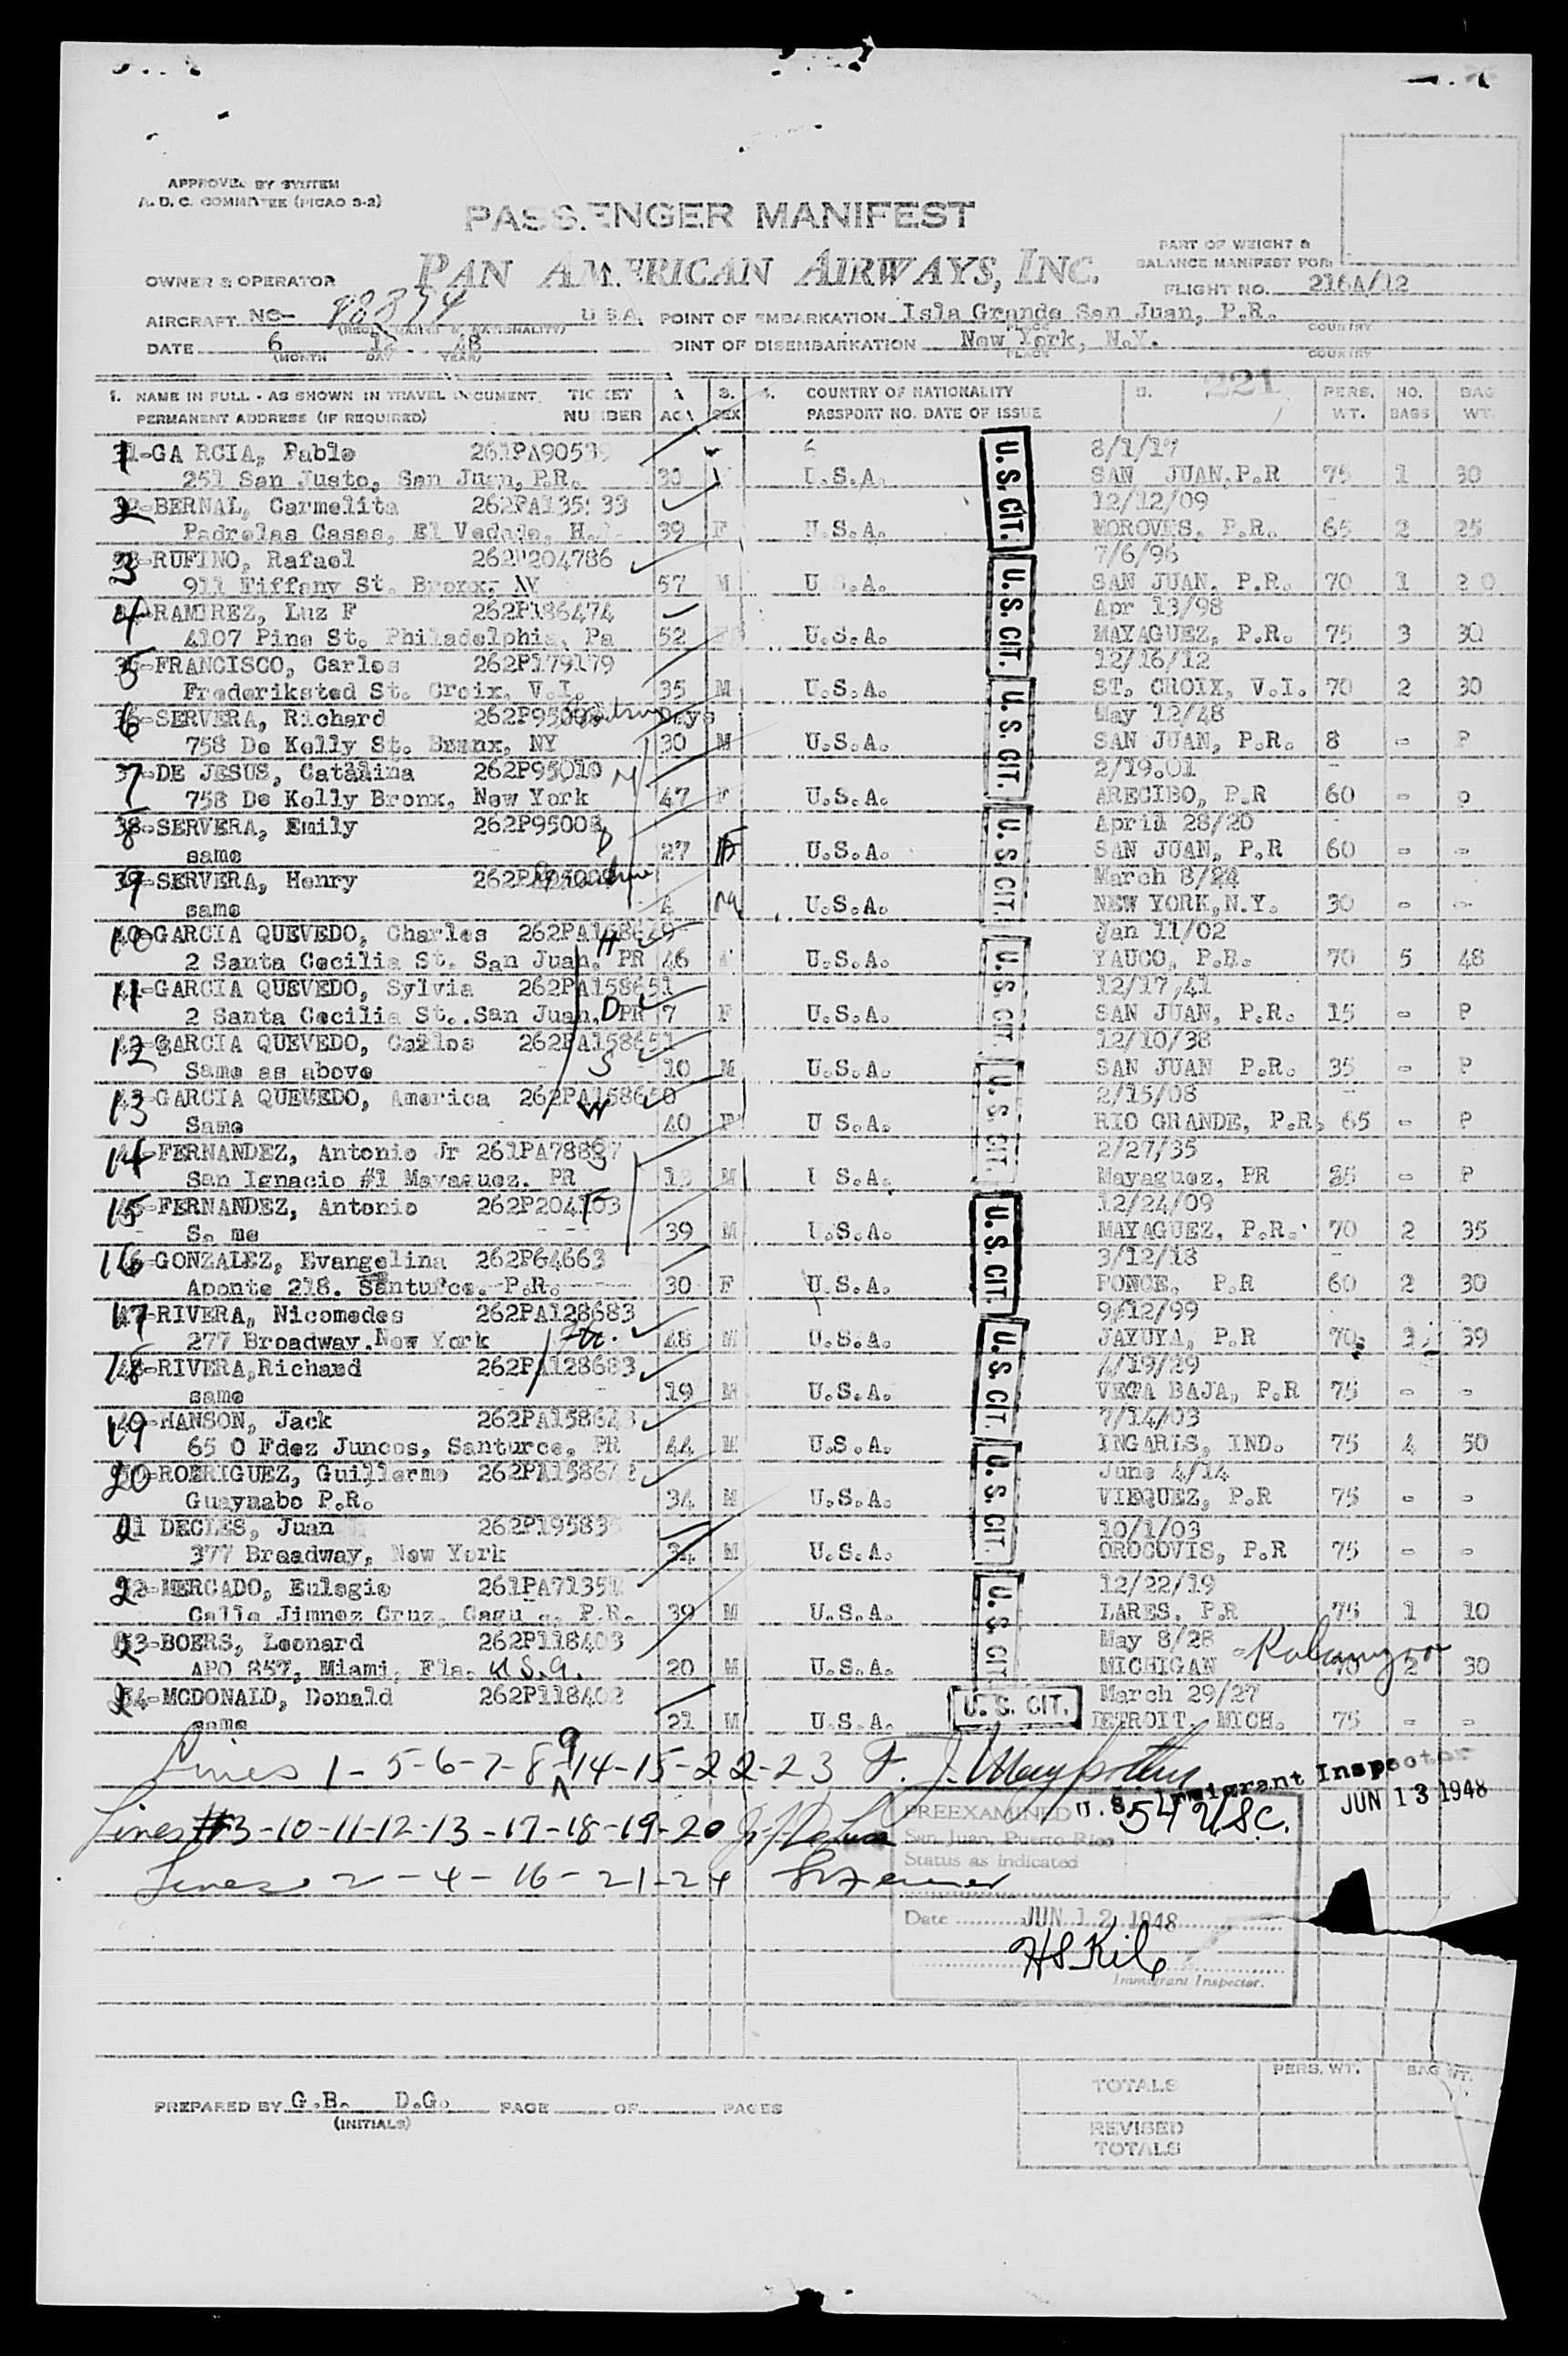 APPROVED BY SYSTEM
A. D. C. COMMITTEE (PICAO S-2)
PASSENGER MANIFEST
PART OF WEIGHT &
BALANCE MANIFEST FOR:
OWNER & OPERATOR PAN AMERICAN AIRWAYS, INC.
FLIGHT NO. 216A/12
AIRCRAFT NC- 88374 U S A. POINT OF EMBARKATION Isla Grande San Juan, P.R.
PLACE COUNTRY
DATE 6 12 48 POINT OF DISEMBARKATION New York, N.Y.
(MONTH DAY YEAR) PLACE COUNTRY
221
1. NAME IN FULL - AS SHOWN IN TRAVEL DOCUMENT TICKET 3. 4. COUNTRY OF NATIONALITY 5. PERS. NO. BAG
PERMANENT ADDRESS (IF REQUIRED) NUMBER SEX PASSPORT NO. DATE OF ISSUE WT. BAGS WT.
1 GA RCIA, Pablo 261PA90539 8/1/17
251 San Justo, San Juan, P.R. 30 U.S.A. SAN JUAN, P.R 75 1 30
2 BERNAL, Carmelita 12/12/09
Padrelas Casas, El Vedado, H. 39 F U.S.A. MOROVIS, P.R. 65 2 25
3 RUFINO, Rafael 262P204786 7/6/96
911 Tiffany St. Bronx, NY 57 M U.S.A. SAN JUAN, P.R. 70 1
4 RAMIREZ, Luz F 262P186474 Apr 13/98
4107 Pine St. Philadelphia, Pa 52 U.S.A. MAYAGUEZ, P.R. 75 3 30
5 FRANCISCO, Carlos 262P179179 12/16/12
Frederiksted St. Croix, V.I. 35 M U.S.A. ST. CROIX, V.I. 70 2 30
6 SERVERA, Richard Days May 12/48
758 De Kelly St. Bronx, NY 30 M U.S.A. SAN JUAN, P.R. 8 - P
7 DE JESUS, Catalina 262P95010 M 2/19.01
758 De Kelly Bronx, New York 47 F U.S.A. ARECIBO, P.R 60 - P
8 SERVERA, Emily 262P95008 D April 28/20
same 27 F U.S.A. SAN JUAN, P.R 60 - -
9 SERVERA, Henry March 8/24
same 4 U.S.A. NEW YORK, N.Y. 30 - -
10 GARCIA QUEVEDO, Charles 262PA158649 H Jan 11/02
2 Santa Cecilia St. San Juan, PR 46 U.S.A. YAUCO, P.R. 70 5 48
11 GARCIA QUEVEDO, Sylvia 262PA158651 12/17,41
2 Santa Cecilia St..San Juan, D PR 7 F U.S.A. SAN JUAN, P.R. 15 - P
12 GARCIA QUEVEDO, Carlos 262PA158651 12/10/38
Same as above S 10 M U.S.A. SAN JUAN P.R. 35 - P
13 GARCIA QUEVEDO, America 262PA158650 2/15/08
Same W 40 F U S.A. RIO GRANDE, P.R. 65 - P
14 FERNANDEZ, Antonio Jr 261PA78887 S 2/27/35
San Ignacio #1 Mayaguez. PR M U S.A. Mayaguez, PR 85 - P
15 FERNANDEZ, Antonio 262P204103 F 12/24/09
Sa me 39 M U.S.A. MAYAGUEZ, P.R. 70 2 35
16 GONZALEZ, Evangelina 262P64663 3/12/18
Aponte 218. Santurce. P.R. 30 F U.S.A. PONCE, P.R 60 2 30
17 RIVERA, Nicomedes 262PA128683 9/12/99
277 Broadway.New York 48 M U.S.A. JAYUYA, P.R 70 3 39
18 RIVERA,Richard 262PA128683 4/19/29
same 19 M U.S.A. VEGA BAJA, P.R 75 - -
19 HANSON, Jack 262PA158643 7/14/03
65 O Fdez Juncos, Santurce, PR 44 M U.S.A. INGARLS, IND. 75 4 50
20 RODRIGUEZ, Guillermo June 4/14
Guaynabo P.R. 34 M U.S.A. VIEQUEZ, P.R 75 - -
21 DECLES, Juan 262P195838 10/1/03
377 Broadway, New York 34 M U.S.A. OROCOVIS, P.R 75 - -
22 MERCADO, Eulogio 261PA71351 12/22/19
Calle Jimnez Cruz, P.R. 39 M U.S.A. LARES, P.R 75 1 10
23 BOERS, Leonard 262P118403 May 8/28
APO 857, Miami, Fla. U.S.A. 20 M U.S.A. MICHIGAN - Kalamazoo 70 2 30
24 MCDONALD, Donald 262P118402 March 29/27
same 21 M U.S.A. DETROIT, MICH. 75 - -
U.S. CIT.
U.S. CIT.
U.S. CIT.
U.S. CIT.
U.S. CIT
U.S. CIT.
U.S. CIT.
U.S. CIT.
U.S. CIT.
U.S. CIT.
U. S. CIT.
Lines 1-5-6-7-8-9-14-15-22-23
U.S. Immigrant Inspector
JUN 13 1948
Lines #3-10-11-12-13-17-18-19-20
54 USC.
Lines 2-4-16-21-24
PREEXAMINED
San Juan, Puerto Rico
Status as indicated
Date JUN 12 1948
Immigrant Inspector.
TOTALS PERS. WT. BAG WT.
PREPARED BY G.B. D.G. PAGE OF PAGES
(INITIALS)
REVISED
TOTALS